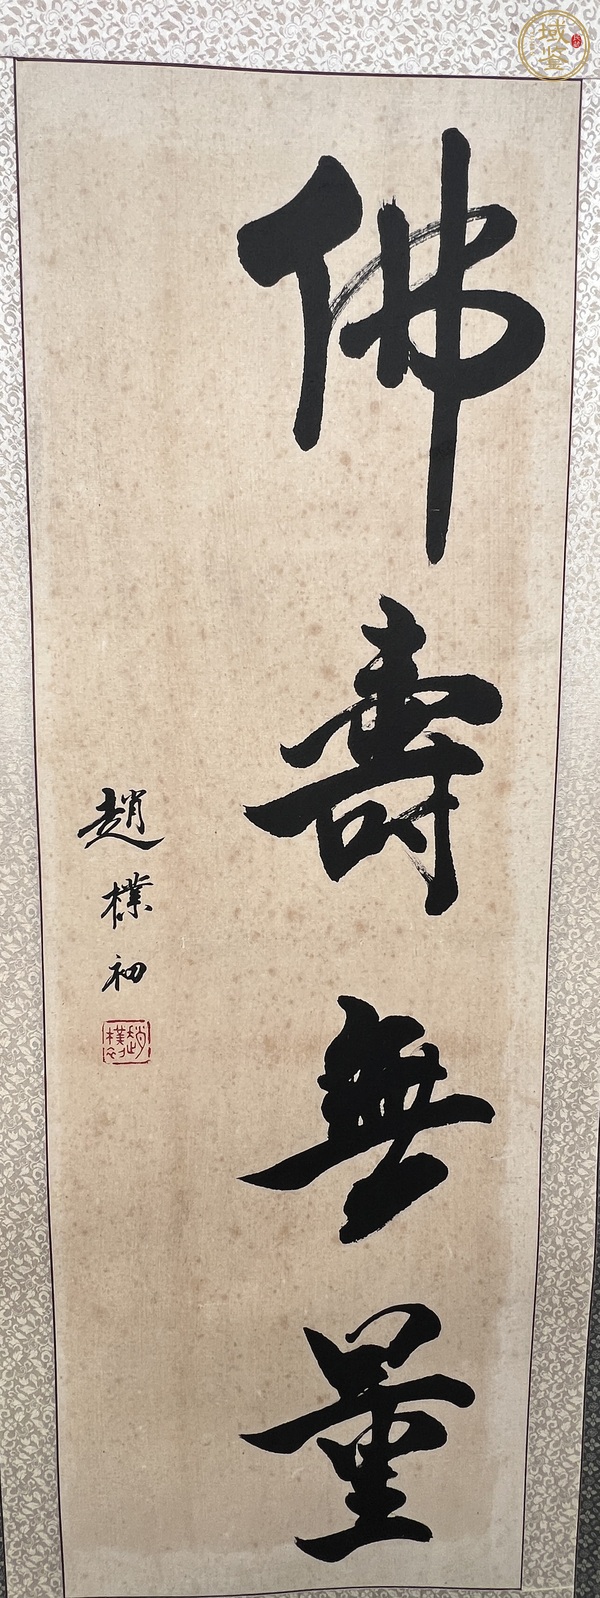 佛壽無量
趙樸初
趙樸初
域鉴